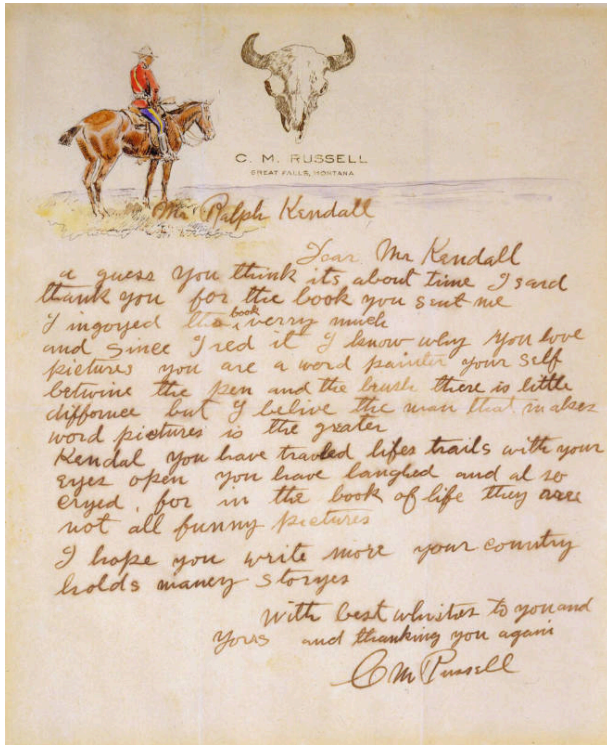 C. M. RUSSELL
GREAT FALLS, MONTANA
Mr Ralph Kendall
Dear Mr Kendall
a guess you think its about time I said
thank you for the book you sent me
I ingoyed the book verry much
and since I red it I know why you love
pictures you are a word painter your self
betwine the pen and the brush there is little
differnce but I belive the man that makes
word pictures is the greater
Kendal you have travled lifes trails with your
eyes open you have laughed and al so
cryed, for in the book of life they are
not all funny pictures
I hope you write more your country
holds maney storyes
With best whishes to you and
yours and thanking you again
C M Russell